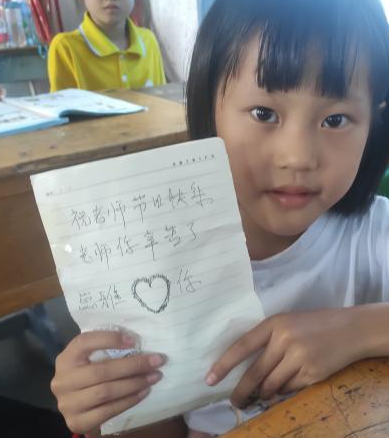 祝老师节日快乐
老师你辛苦了
雅 ♡ 你